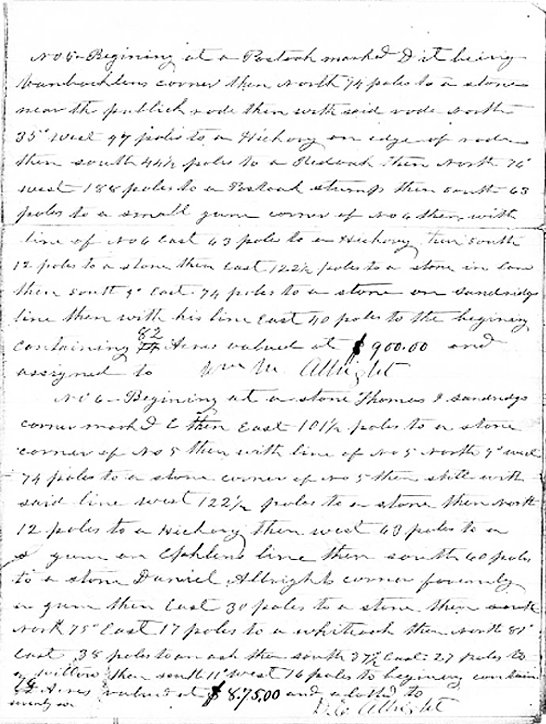 No 5 Begining at a Postoak marked D it being
corner then North 74 poles to a stone
near the publick rode then with said rode North
35° West 47 poles to a Hickory on edge of rode
then south 44½ poles to a Redoak then North 76°
west 188 poles to a Postoak stump then south 63
poles to a small gum corner of No 6 then with
line of No 6 East 43 poles to a Hickory then South
12 poles to a stone then East 122½ poles to a stone in
then south 9° East 74 poles to a stone on Sandridge
line then with his line East 40 poles to the begining
containing 82 Acres valued at $900.00 and
assigned to Wm M. Albright
No 6 Begining at a stone Thomas Sandridge
corner marked E then East 101½ poles to a stone
corner of No 5 then with line of No 5 North 9° west
74 poles to a stone corner of No 5 then still with
said line west 122½ poles to a stone then North
12 poles to a Hickory then west 43 poles to a
gum on line then south 40 poles
to a stone Daniel Albrights corner formerly
a gum then East 30 poles to a stone then
North 75° East 17 poles to a whiteoak then North 81°
East 38 poles to an ash then south 37½ East 27 poles to
a willow then south 11° west 16 poles to begining contain
Acres valued at $875.00 and alotted to
Albright